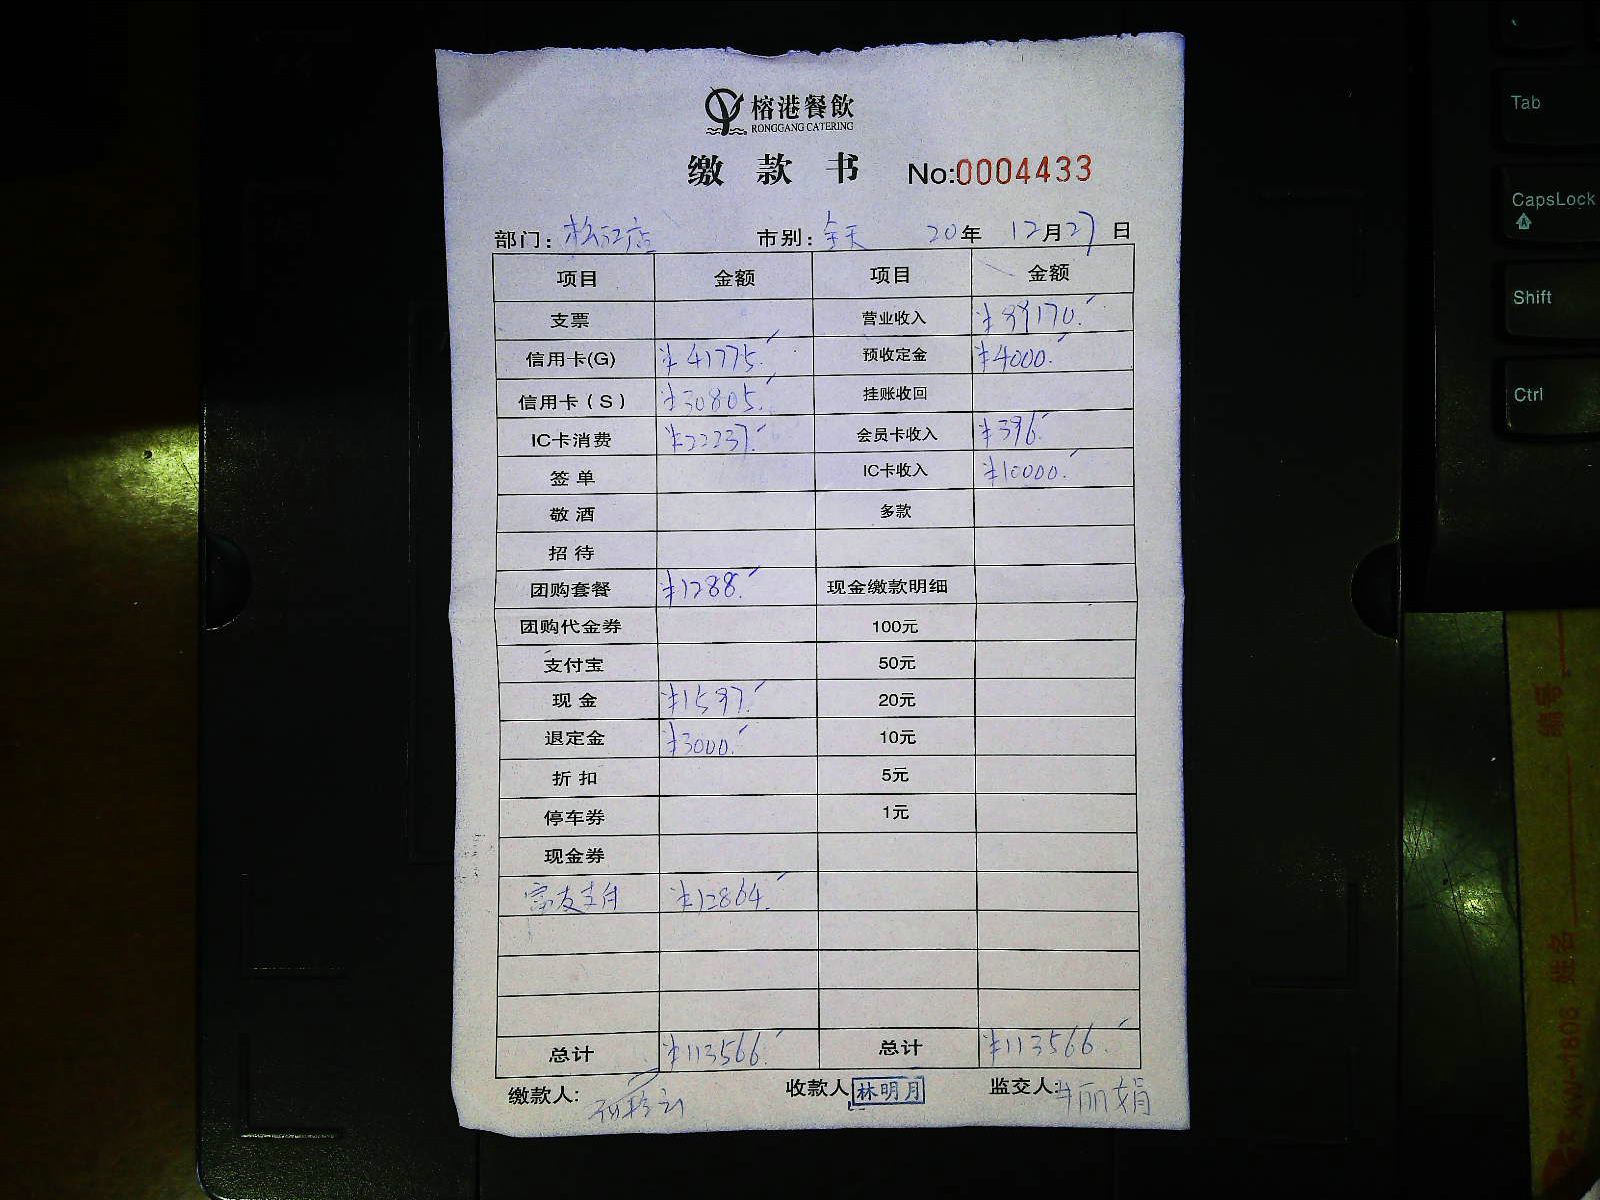 榕港餐飲
RONGGANG CATERING
缴 款 书 No:0004433
部门: 松江店 市别: 全天 20年 12月27日
项目 金额 项目 金额
支票 营业收入 ¥99170.
信用卡(G) ¥41775. 预收定金 ¥4000.
信用卡(S) ¥30805. 挂账收回
IC卡消费 ¥22237. 会员卡收入 ¥396.
签单 IC卡收入 ¥10000.
敬酒 多款
招待
团购套餐 ¥1288. 现金缴款明细
团购代金券 100元
支付宝 50元
现金 ¥1597. 20元
退定金 ¥3000. 10元
折扣 5元
停车券 1元
现金券
富友支付 ¥12864.
总计 ¥113566. 总计 ¥113566.
缴款人: 收款人 林明月 监交人: 丽娟
Tab
CapsLock
Shift
Ctrl
编号
姓名
XW-1806